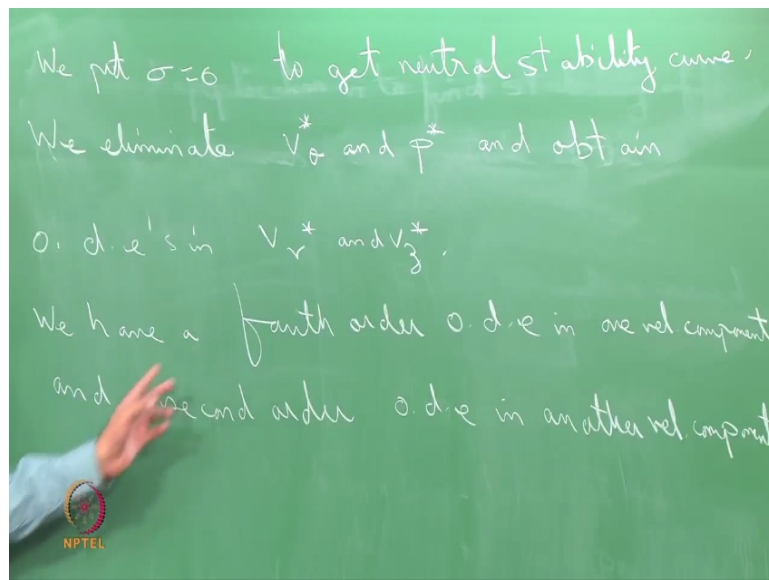 We put σ=0 to get neutral stability curve.
We eliminate V*θ and P* and obtain
o.d.e's in Vr* and V3*.
We have a fourth order o.d.e in one vel component
and second order o.d.e in another vel. component
NPTEL